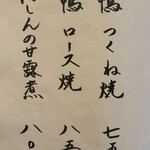 鴨つくね焼 七五
鴨ロース焼 八五
にしんの甘露煮 八〇